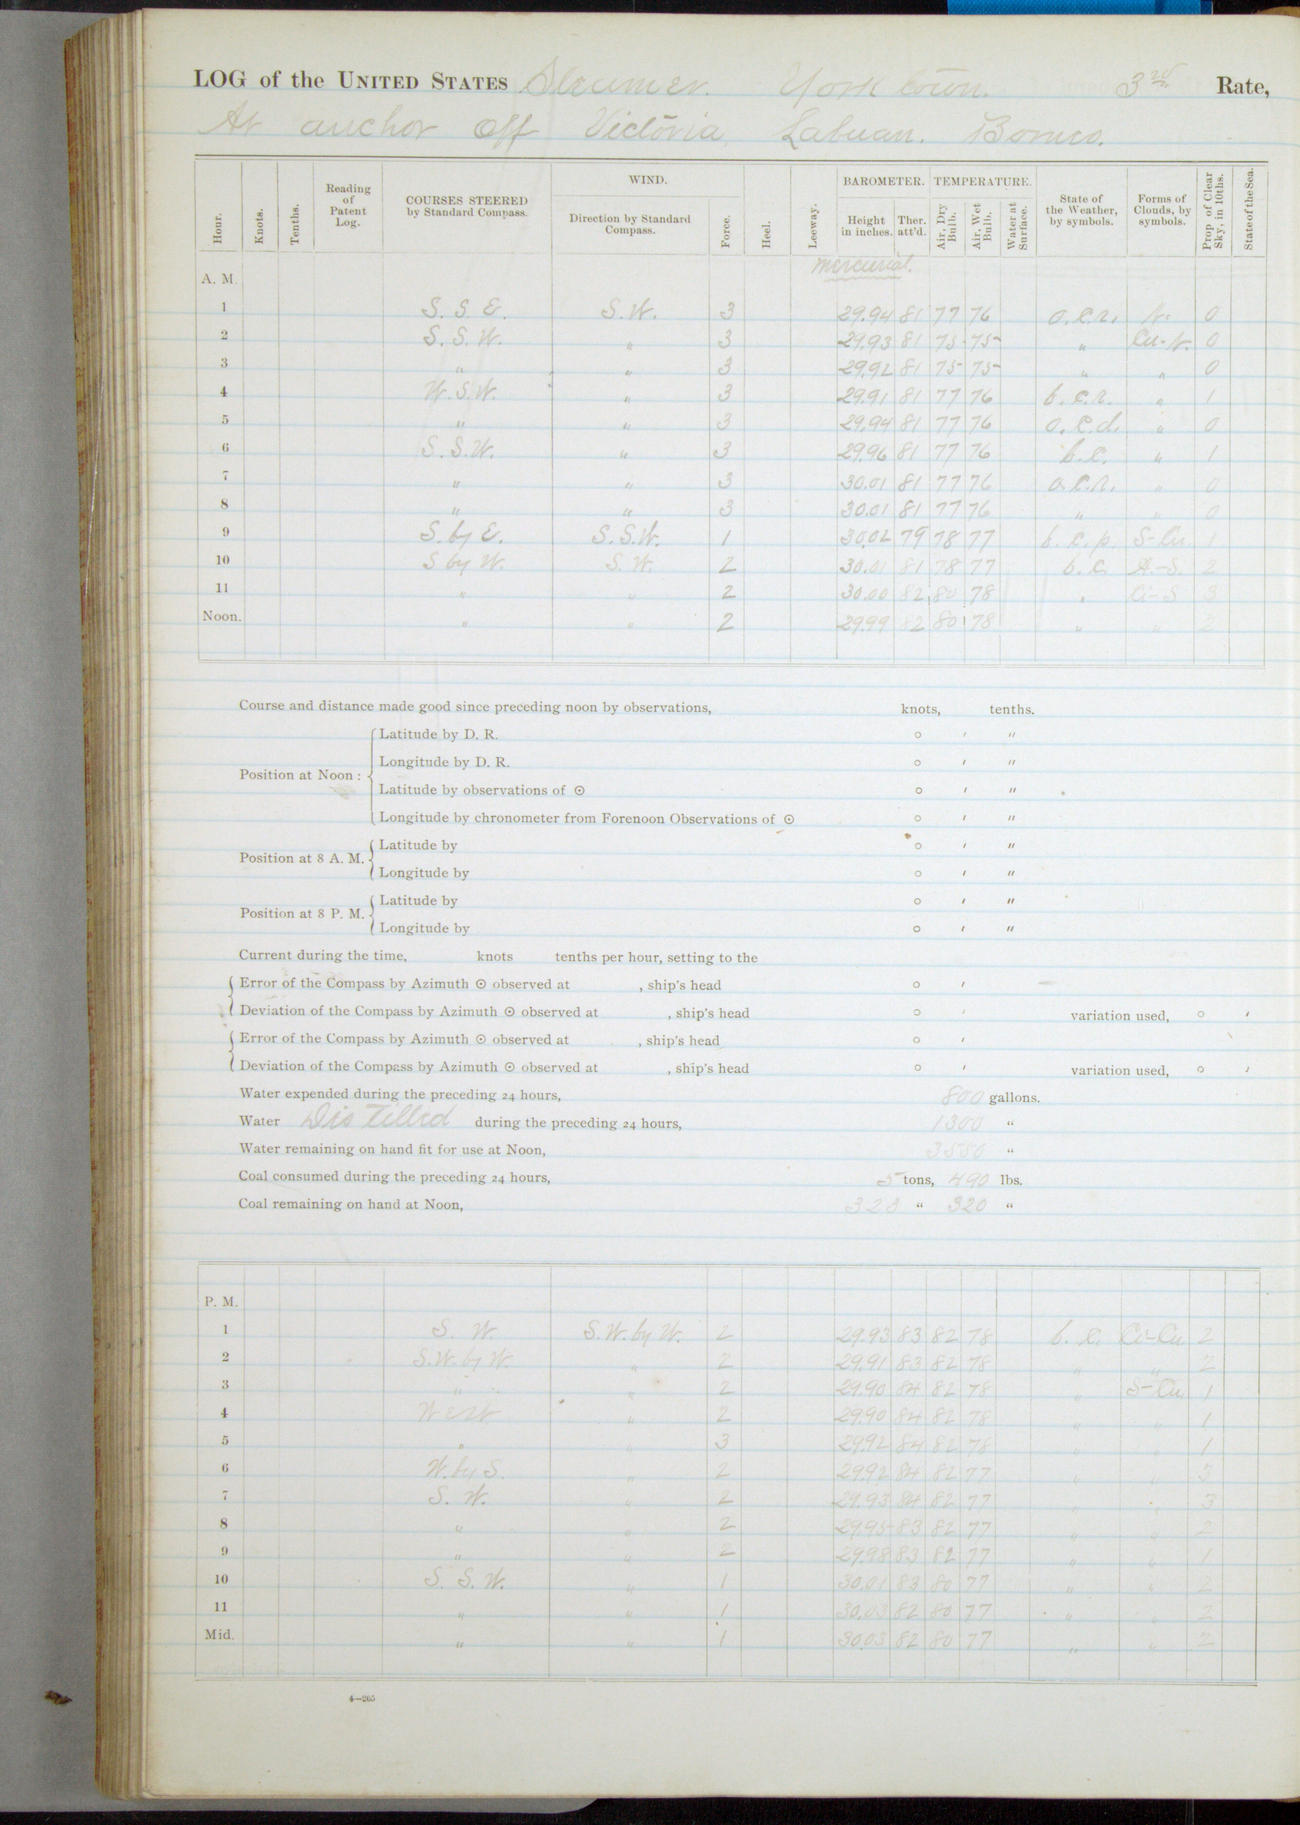 LOG of the UNITED STATES Steamer. Yorktown. 3rd Rate,
At anchor off Victoria, Labuan. Borneo.
Hour. Knots. Tenths. Reading of Patent Log. COURSES STEERED by Standard Compass. WIND. Direction by Standard Compass. Force. Heel. Leeway. BAROMETER. Height in inches. Ther. att'd. TEMPERATURE. Air, Dry Bulb. Air, Wet Bulb. Water at Surface. State of the Weather, by symbols. Forms of Clouds, by symbols. Prop. of Clear Sky, in 10ths. State of the Sea.
mercurial.
A. M.
1 S. S. E. S.W. 3 29.94 81 77 76 o.c.r. N. 0
2 S. S. W. " 3 29.93 81 75 75 " Cu-N. 0
3 " " 3 29.92 81 75 75 " " 0
4 W.S.W. " 3 29.91 81 77 76 b.c.r. " 1
5 " " 3 29.94 81 77 76 o.c.d. " 0
6 S.S.W. " 3 29.96 81 77 76 b.c. " 1
7 " " 3 30.01 81 77 76 o.c.r. " 0
8 " " 3 30.01 81 77 76 " " 0
9 S. by E. S.S.W. 1 30.02 79 78 77 b.c.p. S-Cu. 1
10 S by W. S.W. 2 30.01 81 78 77 b.c. A.-S. 2
11 " " 2 30.00 82 80 78 " Ci-S 3
Noon. " " 2 29.99 82 80 78 " " 2
Course and distance made good since preceding noon by observations, knots, tenths.
Position at Noon: Latitude by D. R. ° ′ ″
Longitude by D. R. ° ′ ″
Latitude by observations of ☉ ° ′ ″
Longitude by chronometer from Forenoon Observations of ☉ ° ′ ″
Position at 8 A. M. Latitude by ° ′ ″
Longitude by ° ′ ″
Position at 8 P. M. Latitude by ° ′ ″
Longitude by ° ′ ″
Current during the time, knots tenths per hour, setting to the
Error of the Compass by Azimuth ☉ observed at , ship's head ° ′
Deviation of the Compass by Azimuth ☉ observed at , ship's head ° ′ variation used, ° ′
Error of the Compass by Azimuth ☉ observed at , ship's head ° ′
Deviation of the Compass by Azimuth ☉ observed at , ship's head ° ′ variation used, ° ′
Water expended during the preceding 24 hours, 800 gallons.
Water Distilled during the preceding 24 hours, 1300 "
Water remaining on hand fit for use at Noon, 3550 "
Coal consumed during the preceding 24 hours, 5 tons, 490 lbs.
Coal remaining on hand at Noon, 328 " 320 "
P. M.
1 S. W. S.W. by W. 2 29.93 83 82 78 b.c. Ci-Cu 2
2 S.W. by W. " 2 29.91 83 82 78 " " 2
3 " " 2 29.90 84 82 78 " S-Cu 1
4 West " 2 29.90 84 82 78 " " 1
5 " " 3 29.92 84 82 78 " " 1
6 W. by S. " 2 29.92 84 82 77 " " 3
7 S. W. " 2 29.93 84 82 77 " " 3
8 " " 2 29.95 83 82 77 " " 2
9 " " 2 29.98 83 82 77 " " 1
10 S. S. W. " 1 30.01 83 80 77 " " 2
11 " " 1 30.03 82 80 77 " " 2
Mid. " " 1 30.03 82 80 77 " " 2
4—265